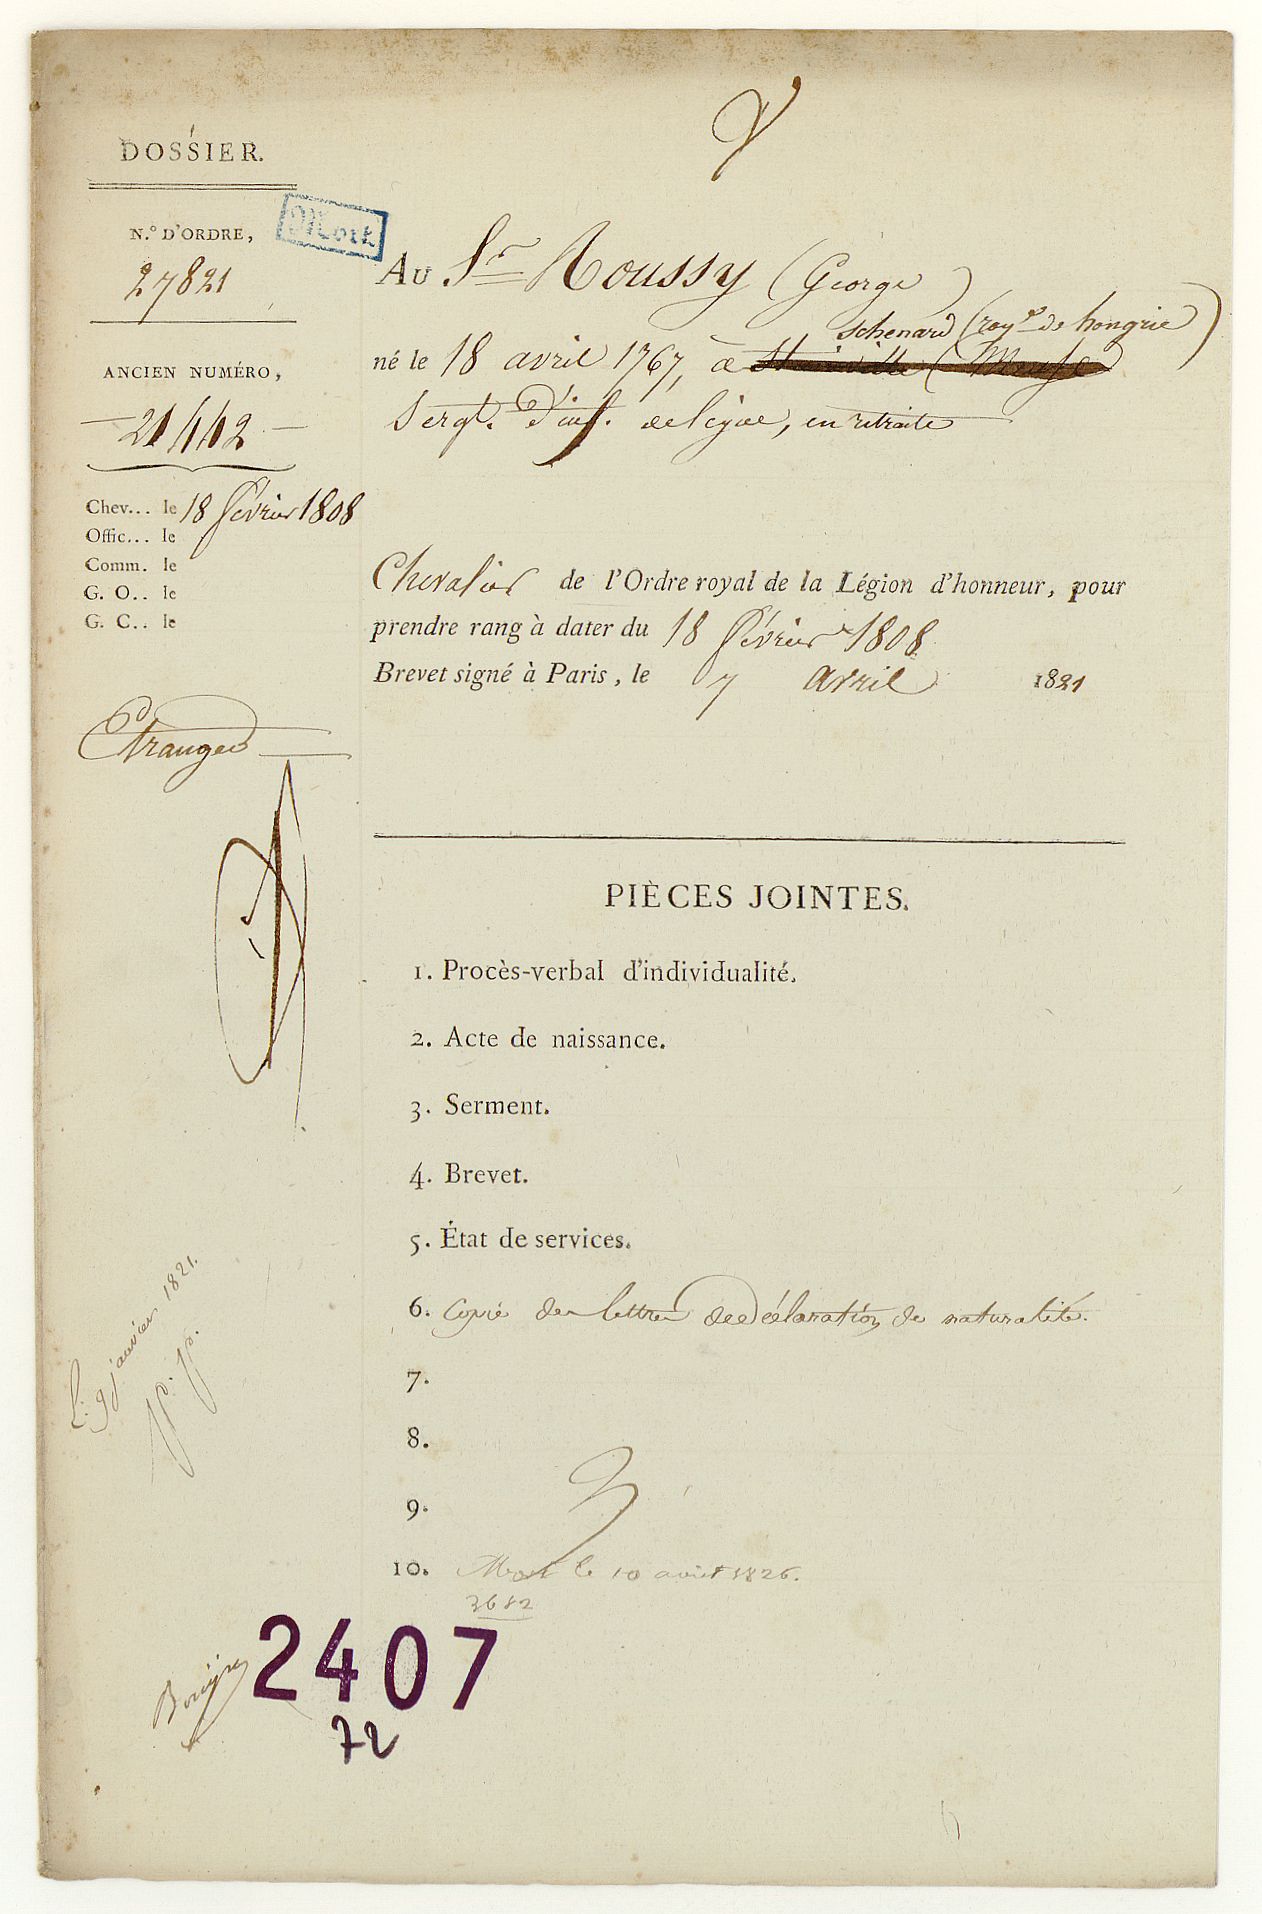 DOSSIER.
N.º D'ORDRE,
27821
ANCIEN NUMÉRO,
21442
Chev... le 18 février 1808
Offic... le
Comm. le
G. O.. le
G. C.. le
Etranger
L. 9 janvier 1821.
p. p.
Mort
AU Sr Roussy (George)
schenard (roy.e de hongrie)
né le 18 avril 1767, à Stainville (Meuse)
Sergt. d'inf. de ligne, en retraite
Chevalier de l'Ordre royal de la Légion d'honneur, pour
prendre rang à dater du 18 février 1808
Brevet signé à Paris, le 7 avril 1821
PIÈCES JOINTES.
1. Procès-verbal d'individualité.
2. Acte de naissance.
3. Serment.
4. Brevet.
5. État de services.
6. Copie des lettres de déclaration de naturalité.
7.
8.
9.
10. Mort le 10 août 1826.
3682
2407
72